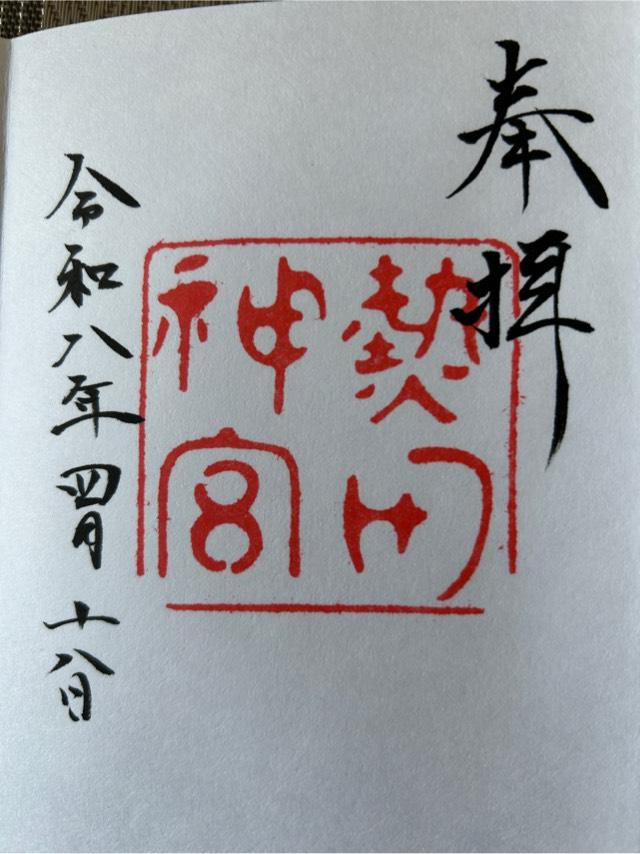 奉拝
熱田
神宮
令和八年四月十八日